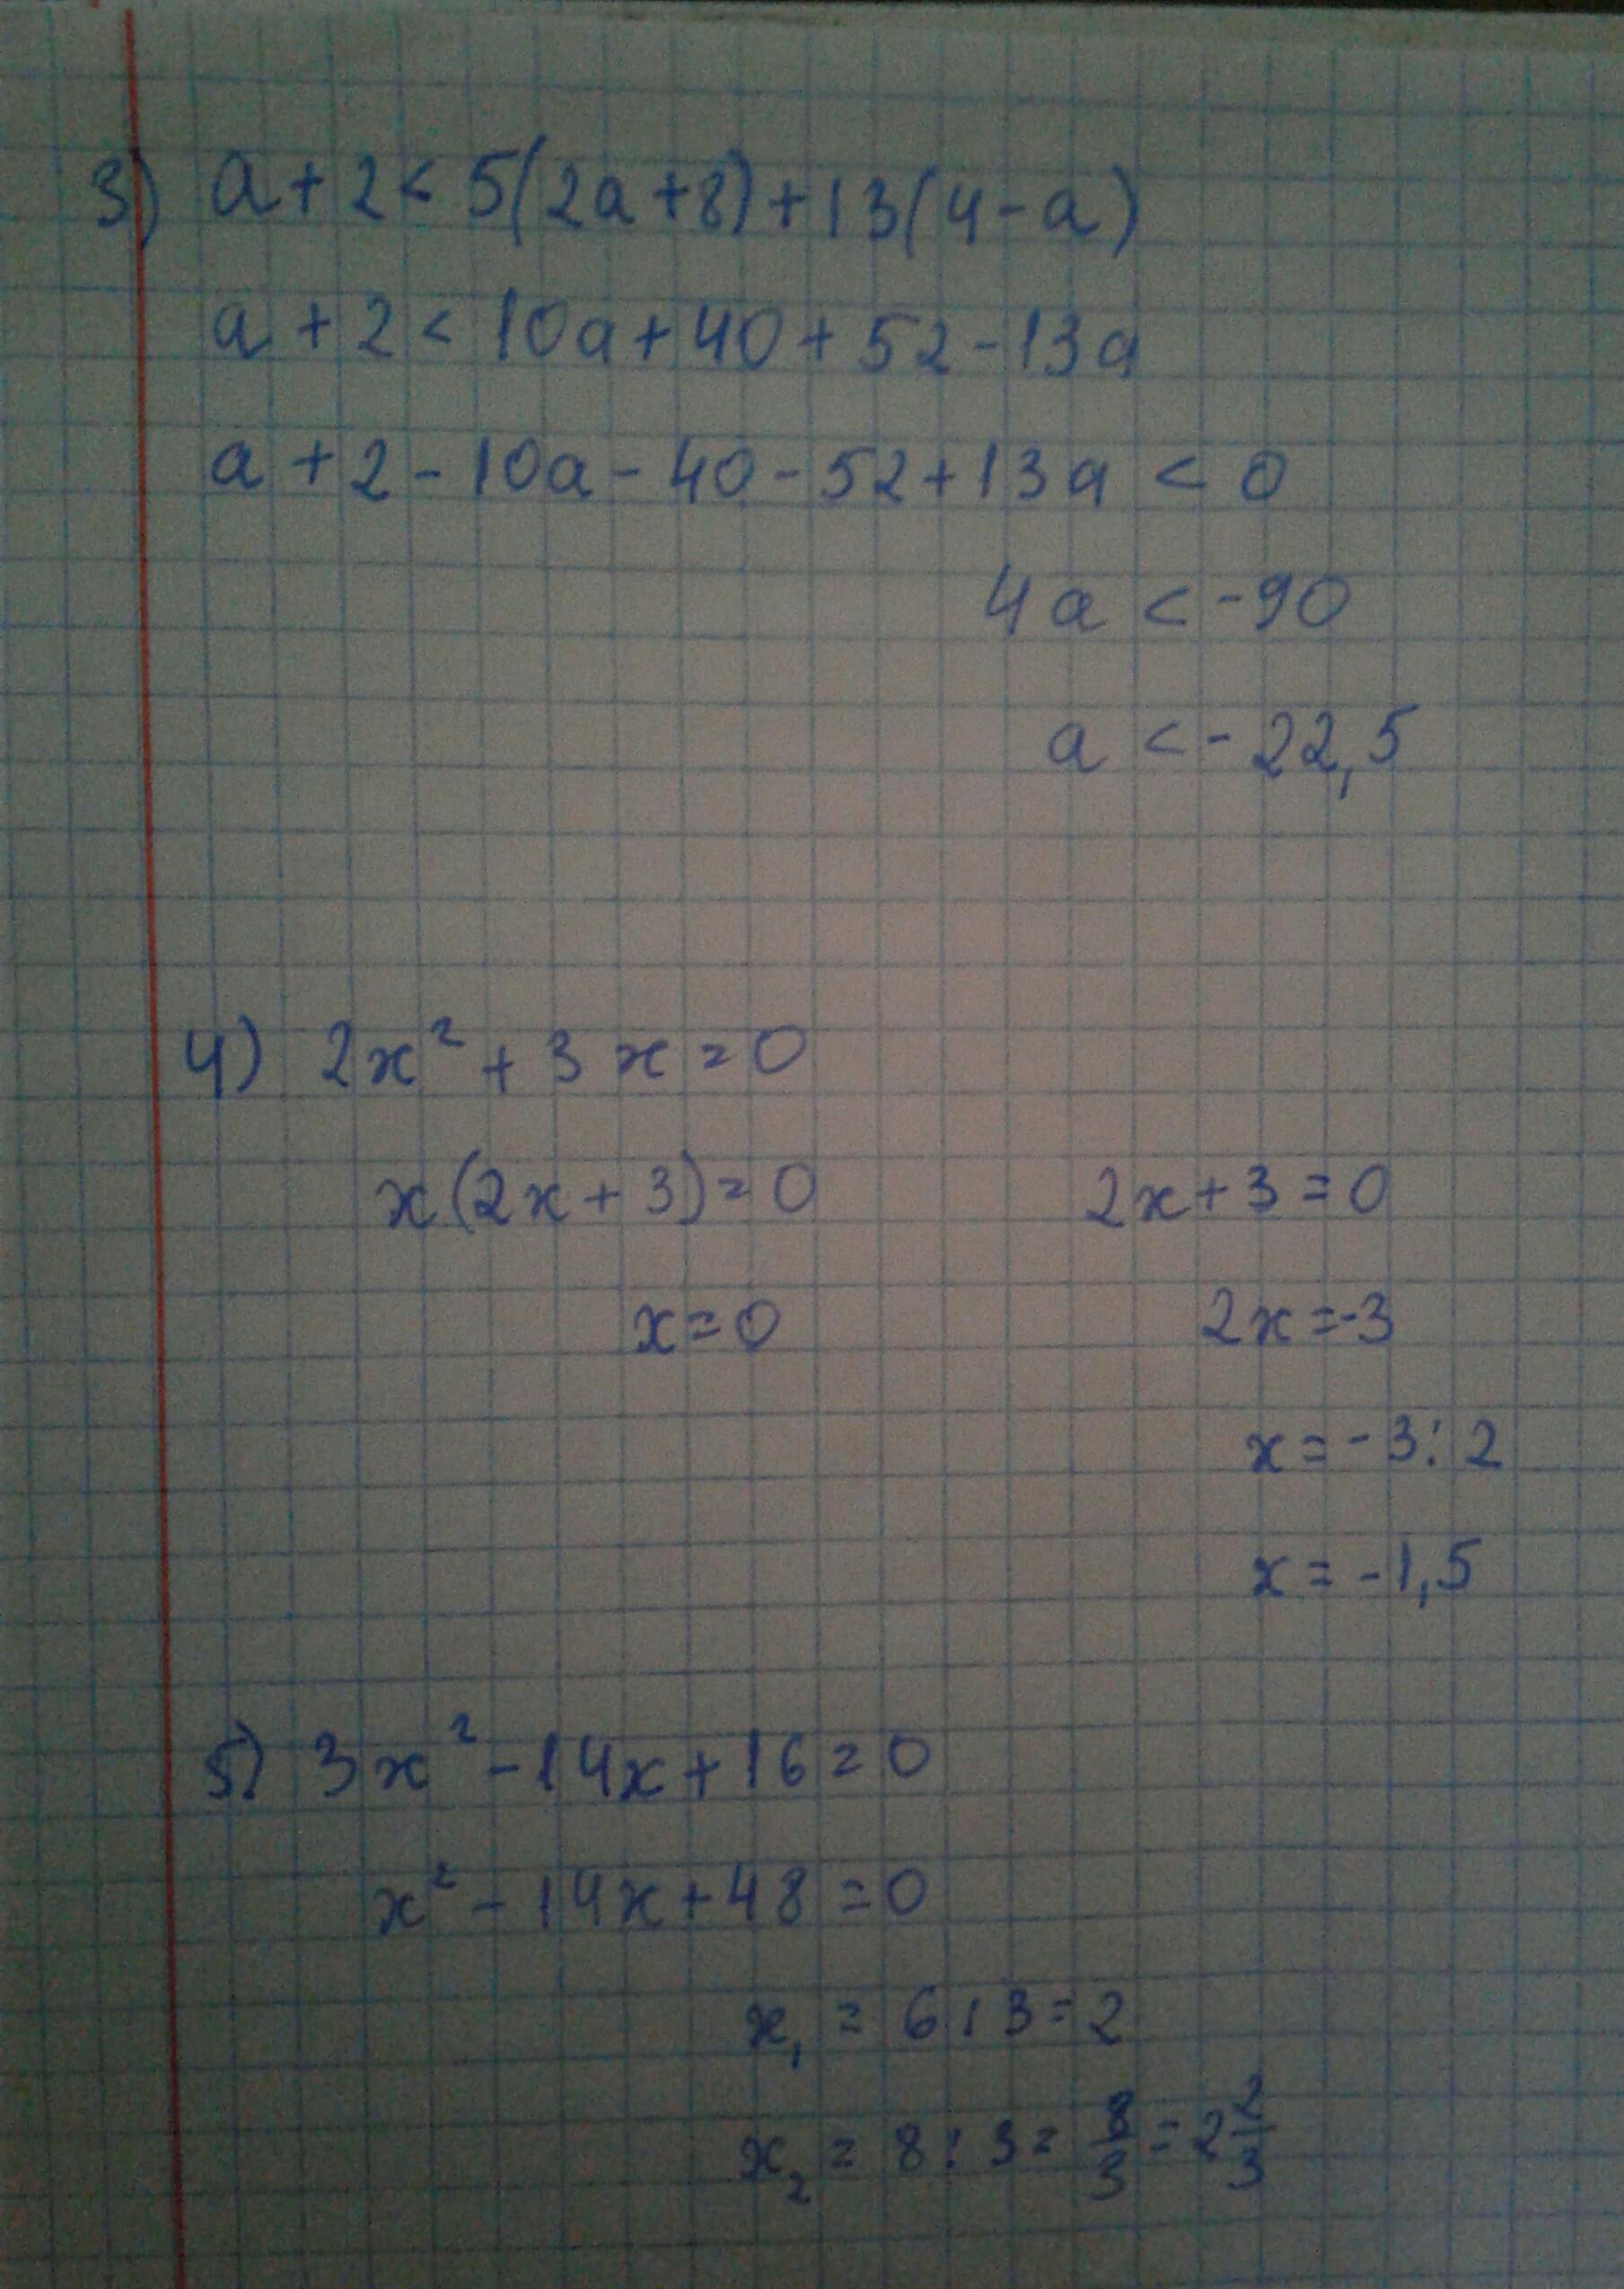 3) a + 2 < 5(2a + 8) + 13(4 - a)
a + 2 < 10a + 40 + 52 - 13a
a + 2 - 10a - 40 - 52 + 13a < 0
4a < -90
a < -22,5
4) 2x² + 3x = 0
x(2x + 3) = 0 2x + 3 = 0
x = 0 2x = -3
x = -3 : 2
x = -1,5
5) 3x² - 14x + 16 = 0
x² - 14x + 48 = 0
x₁ = 6 : 3 = 2
x₂ = 8 : 3 = 8/3 = 2 2/3